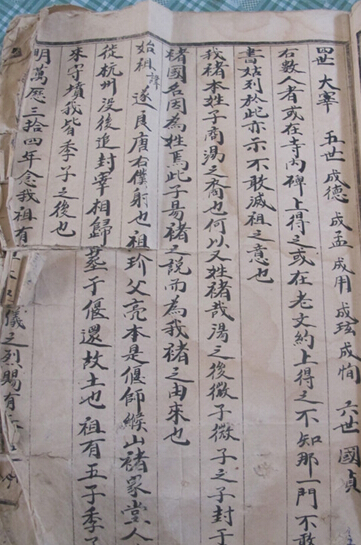 四世 大宰 五世 成德 成孟 成用 成玹 成惰 六世 國貞
右數人者或在寺内碑上得之或在老文約上得之不知那一門不敢
書姑列於此亦示不敢滅祖之意也
我褚本姓子商湯之裔也何以又姓褚哉湯之後微子微子之子封于
褚國名因為姓焉此子易褚之説而為我褚之由來也
始祖諱遂良唐右僕射也祖珍父亮本是偃師緱山褚家堂人
從杭州没後追封宰相歸葬子偃還故土也祖有五子季子
來守墳我皆季子之後也
明萬厯三拾四年念我祖有 儀之列賜有